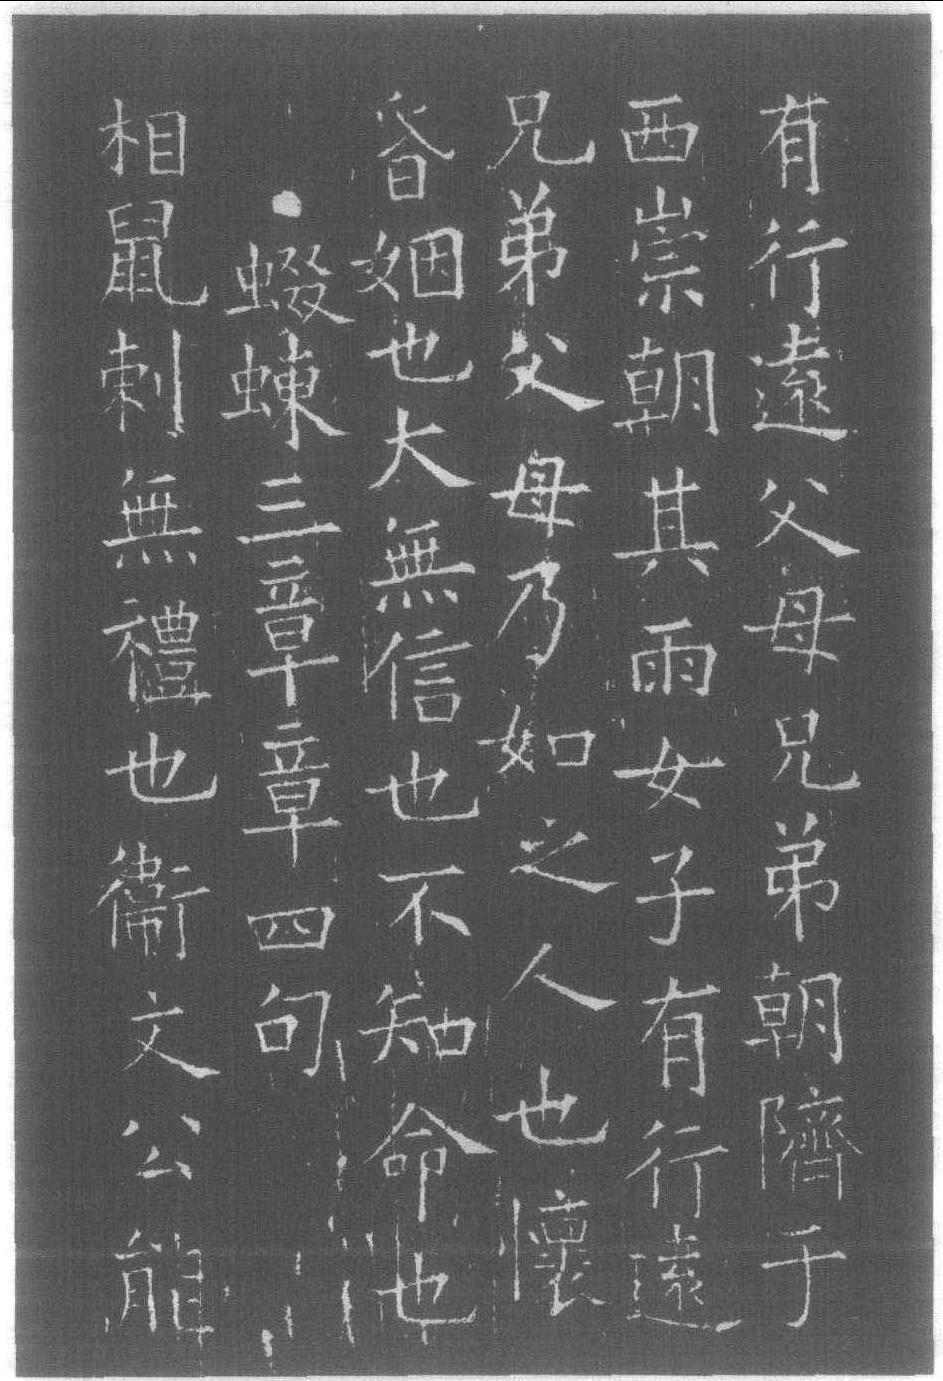 有行遠父母兄弟朝隮于
西崇朝其雨女子有行遠
兄弟父母乃如之人也懷
昏姻也大無信也不知命也
蝃蝀三章章四句
相鼠刺無禮也衛文公能